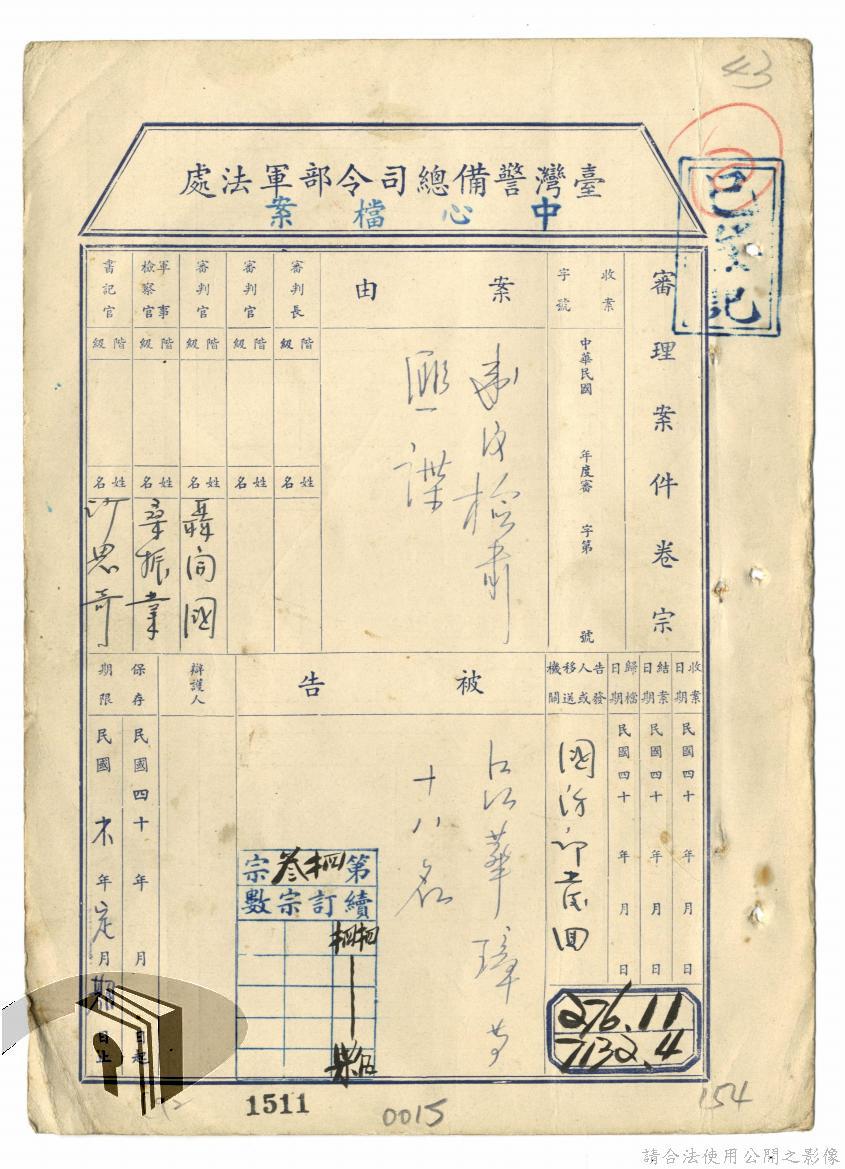 43
臺灣警備總司令部軍法處
中心檔案
已登記
審理案件卷宗
收案字號
中華民國 年度審 字第 號
案由
肅清檢肅
匪諜
審判長
階級
姓名
審判官
階級
姓名
審判官
階級
姓名
聶開國
軍事檢察官
階級
姓名
桑振業
書記官
階級
姓名
許思奇
收案日期
民國四十 年 月 日
結案日期
民國四十 年 月 日
歸檔日期
民國四十 年 月 日
告發人或移送機關
國防部發回
被告
江華璋等
十八名
辯護人
保存期限
民國四十 年 月 日起
民國 不 年 定 月 期 日止
第 柒拾四 叁宗
續訂宗數
276.11
7132.4
1511
0015
154
請合法使用公開之影像